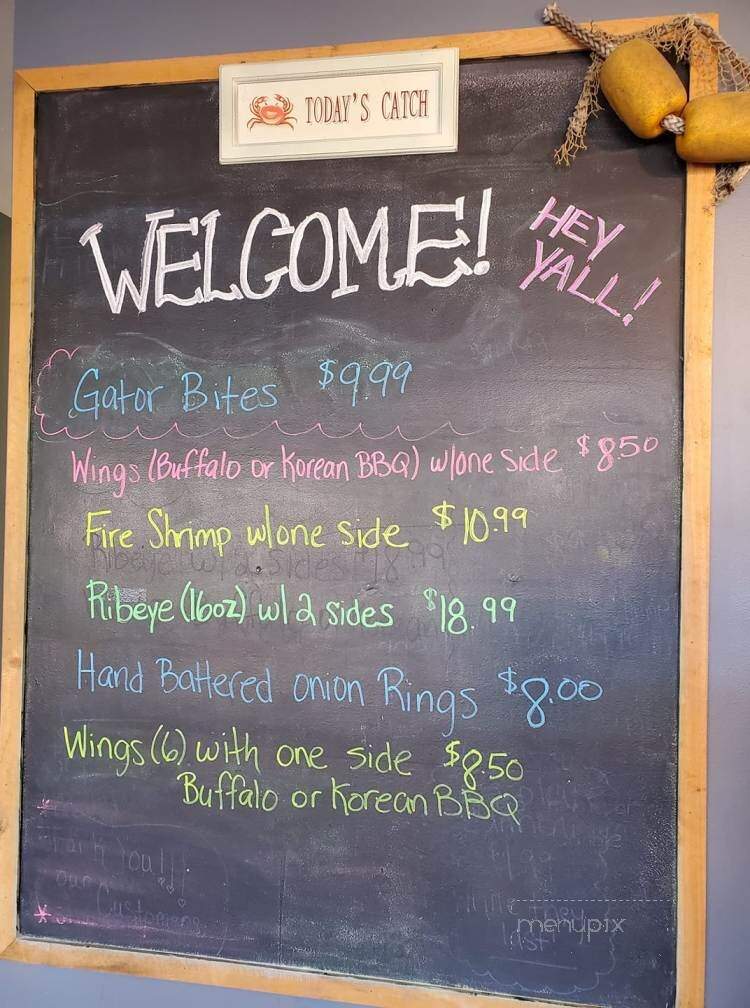 TODAY'S CATCH
WELCOME!
HEY
YALL!
Gator Bites $9.99
Wings (Buffalo or Korean BBQ) w/one side $8.50
Fire Shrimp w/one side $10.99
Ribeye w/ 2 sides 18.99
Ribeye (16oz) w/ 2 sides $18.99
Hand Battered onion Rings $8.00
Wings (6) with one side $8.50
Buffalo or Korean BBQ
You!!!
our
Customers
They
last
menupix